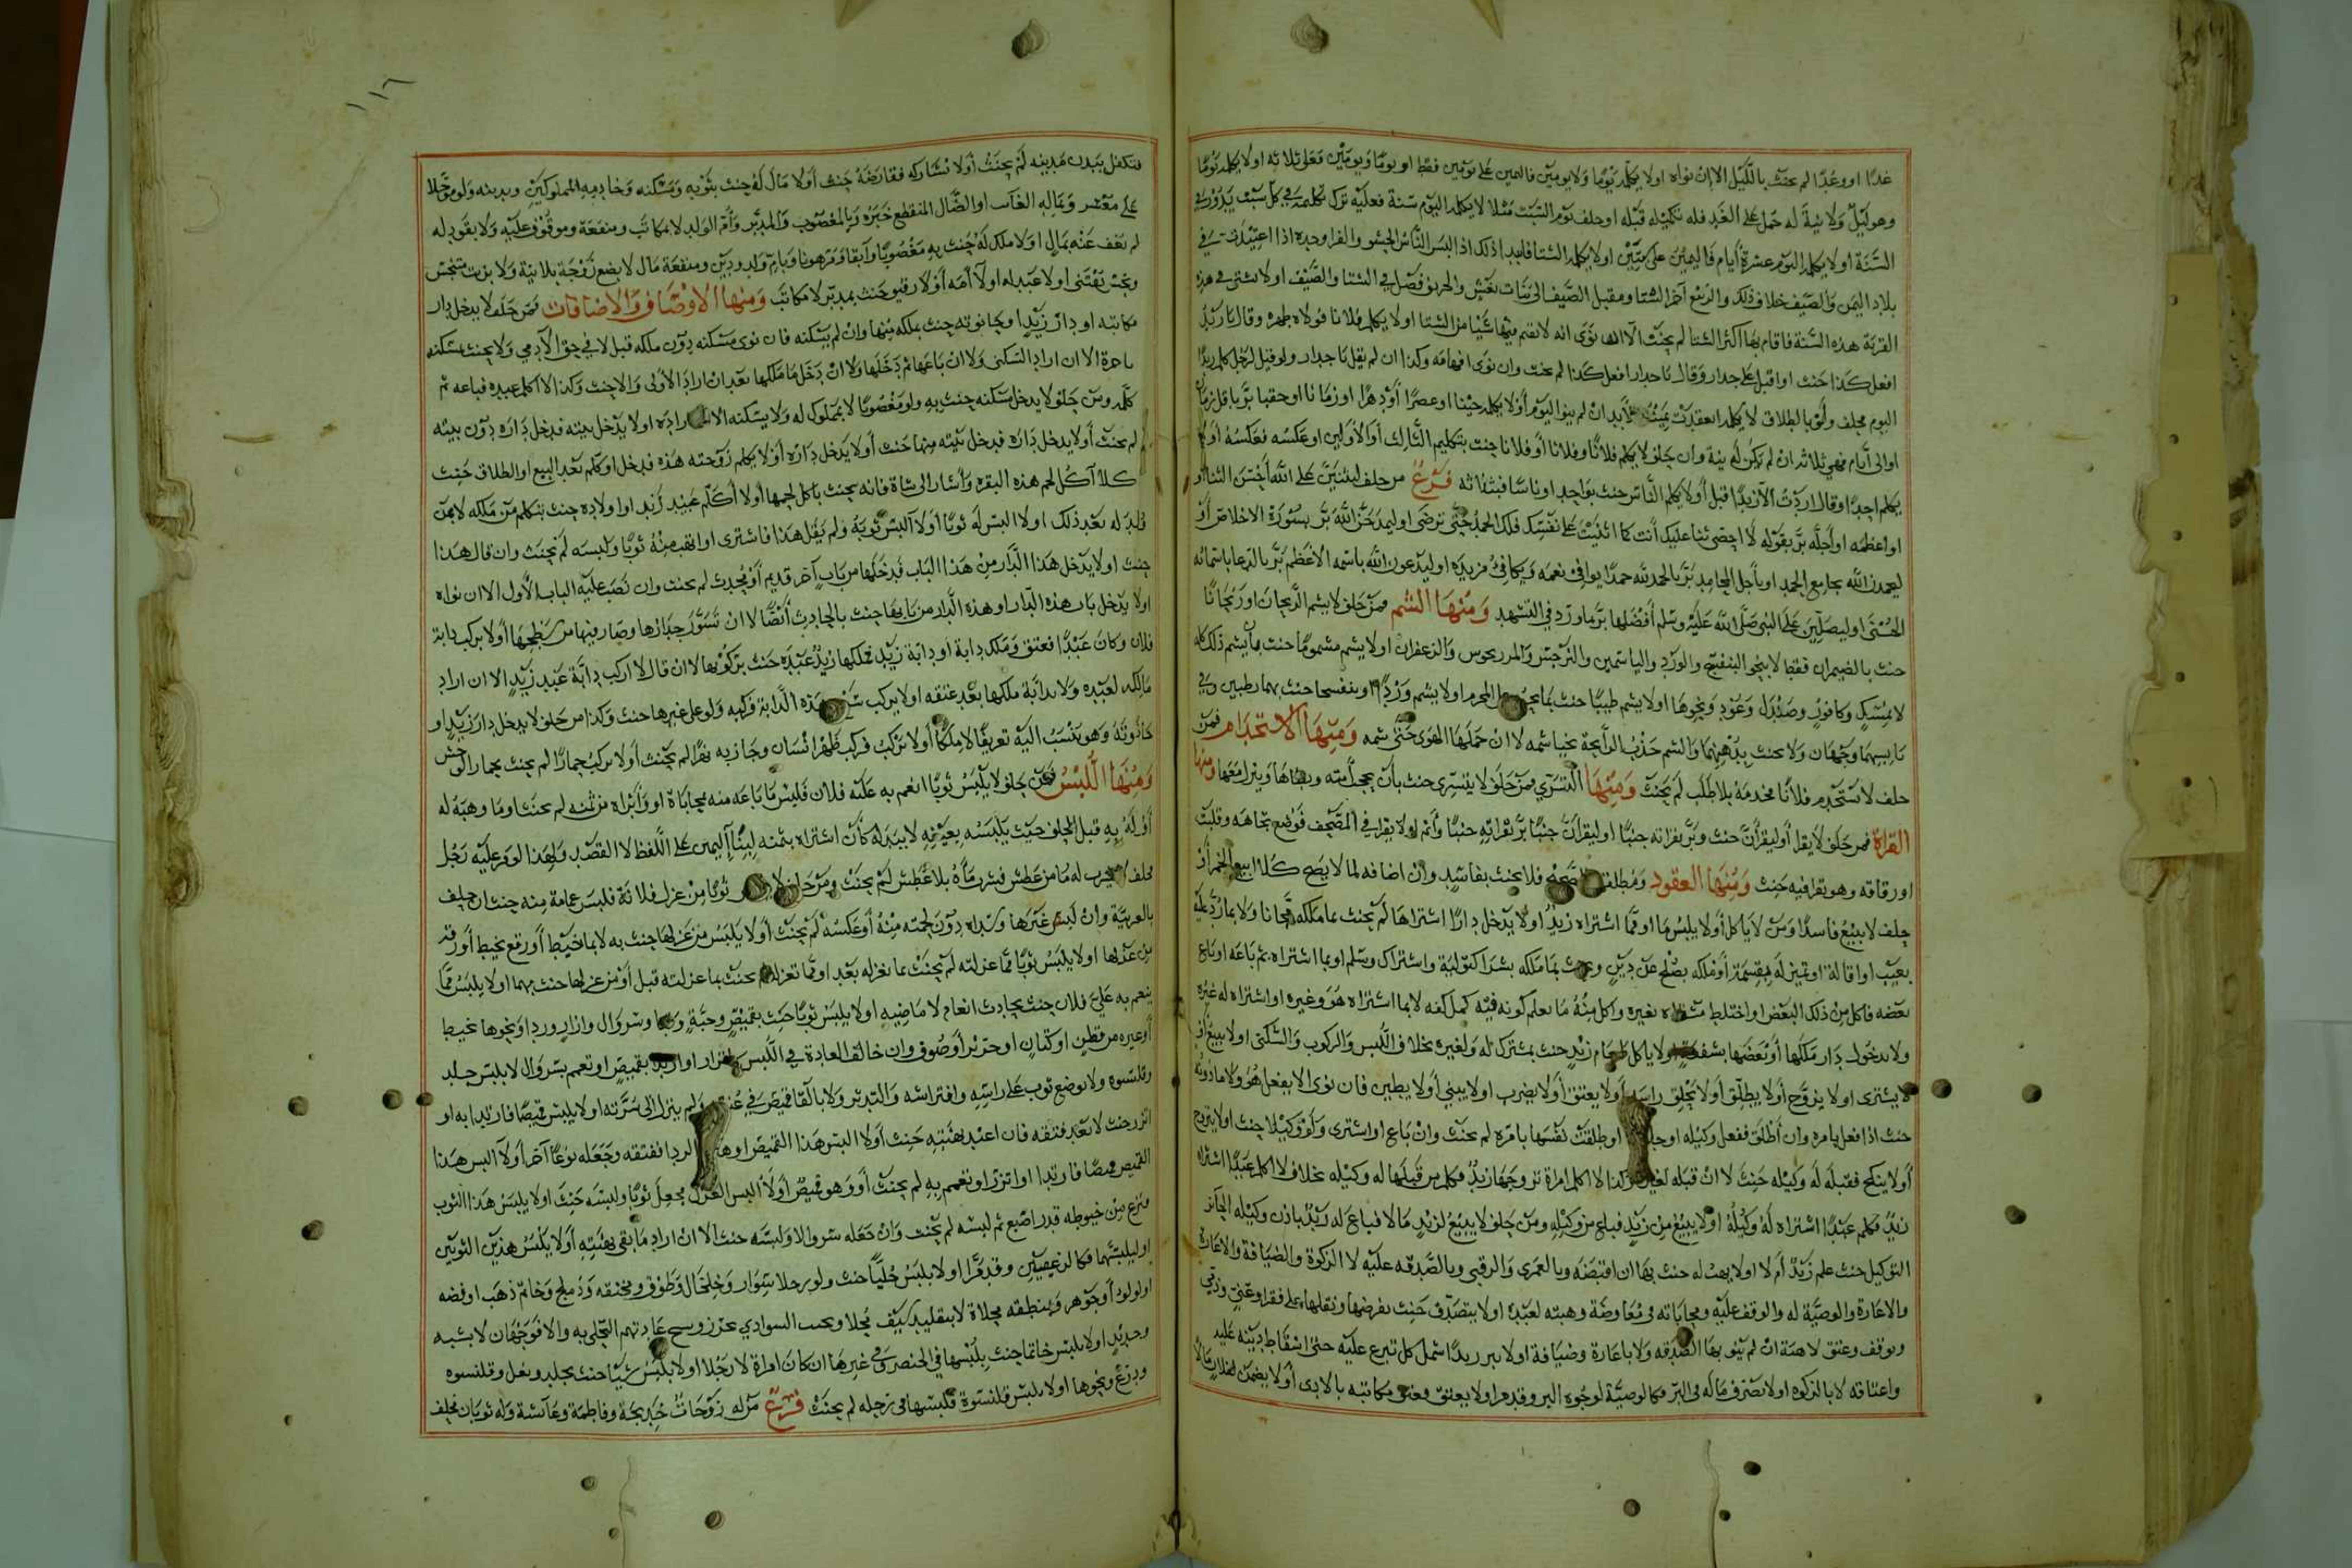 غدًا او وغدًا لم يحنث بالليل الا ان نواه اولا يكلمه يومًا ولا يومين فاليمين على يومين فقط او يومًا ويومين فعلى ثلاثه اولا يكلمه يومًا
وهو ليل ولا نية له حمل على الغد فله تكليمه قبله او حلف يوم السبت مثلا لا يكلمه اليوم سنة فعليه ترك تكليمه في كل سبت يدور في
السنة اولا يكلمه اليوم عشرة أيام فاليمين على سبتين اولا يكلمه الشتا
بلاد اليمن والصيف خلاف ذلك والربيع آخر الشتا ومقبل الصيف الى فصل في الشتا والصيف اولا في هذه
القرية هذه السنة فاقام بها اكثر الشتا لم يحنث الا ان نوى انه لا يقيم فيها شيًا من الشتا اولا يكلم فلانا فولاه ظهره وقال يا زيد
افعل كذا حنث او اقبل على جدار وقال يا جدار افعل كذا لم يحنث وان نوى افهامه وكذا ان لم يقل يا جدار ولو قيل لرجل كلم زيدًا
اليوم فحلف ولو بالطلاق لا يكلمه انعقدت للأبد ان لم ينو اليوم أو لا يكلمه حينا او عصرًا أو دهرًا او زمانا او حقبا بر باقل زمان
اوالى أيام فهي ثلاثه ان لم يكن له نية وان حلف لا يكلم فلانًا وفلانا أو فلانا حنث بتكليم الثالث او الاولين او عكسه فعكسه أولا
يكلم احدًا وقال اردت الا زيدًا قبل أولا يكلم الناس حنث بواحد او ناسًا فبثلاثه فرع من حلف ليثنين على الله أحسن الثنا او
او اعظمه او أجله بر بقوله لا احصي ثنا عليك أنت كما اثنيت على نفسك فلك الحمد حتى ترضى او ليمدحن الله بر بسورة الاخلاص أو
ليحمدن الله بجامع الحمد او بأجل المحامد بر بالحمد لله حمدًا يوافي نعمه ويكافئ مزيده او ليدعون الله باسمه الاعظم بر بالدعا باسمائه
الحسنى او ليصلين على النبي صلى الله عليه وسلم أفضلها بر بما ورد في التشهد ومنها الشم فمن حلف لا يشم الريحان او ريحانًا
حنث بالضيمران فقط لا بنحو البنفسج والورد والياسمين والنرجس والمردجوس والزعفران اولا يشم مشمومًا حنث بما يشم ذلك كله
لا بمسك وكافور وصندل وعود ونحوها اولا يشم طيبًا حنث بما المحرم اولا يشم وردًا او بنفسجا حنث بهما رطبين وفي
يابسهما وجهان ولا يحنث بدهنهما والشم جذب الرائحة بخياشمه لا ان حملها الهوى حتى شمه ومنها الاستخدام فمن
حلف لا يستخدم فلانًا فخدمه بلا طلب لم يحنث ومنها التسري فمن حلف لا يتسرى حنث بأن يحجب أمته ويطأها وينزل معها ومنها
القراة فمن حلف لا يقرا أو ليقرأن حنث وبر بقراته جنبًا او ليقرأن جنبًا بر بقراته جنبًا وأثم اولا يقرا في المصحف فوضع تجاهه وقلبت
اوراقه وهو يقرا فيه حنث ومنها العقود ومطلقها فلا يحنث بفاسد وان اضافه لما لا يصح كلا ابيع الخمر أو
حلف لا يبيع فاسدًا ومن لا ياكل أو لا يلبس ما او مما اشتراه زيد اولا يدخل دارًا اشتراها لم يحنث بما ملكه مجانا ولا بما رد عليه
بعيب او اقالة او تميز له بقسمة أو ملكه بصلح عن دين وحنث بما ملكه بشرا كتولية واشتراك وسلم او بما اشتراه ثم باعه او باع
بعضه فاكل من ذلك البعض او اختلط بغيره واكل منه ما يعلم كونه فيه كملء كفه لا بما اشتراه هو وغيره او اشتراه له غيره
ولا بدخول دار ملكها أو بعضها بشفعة اولا ياكل طعام زيد حنث بمشترك له ولغيره بخلاف اللبس والركوب والسكنى اولا يبيع أو
لا يشترى اولا يزوج أو لا يطلق أو لا يحلق راسه أو لا يعتق أو لا يضرب اولا يبني أو لا يطين فان نوى الا يفعل هو ولا ماذونه
حنث اذا فعل بامره وان أطلق ففعل وكيله او طلقت نفسها بامره لم يحنث وان باع او اشترى وكيلا حنث اولا يتزوج
أو لا ينكح فقبله له وكيله حنث لا ان قبله لغيره وكذا لا اكلم امراة تزوجها زيد فكلم من قبلها له وكيله بخلاف لا اكلم عبدًا اشتراه
زيد فكلم عبدًا اشتراه له وكيله اولا يبيع من زيد فباع من وكيله ومن حلف لا يبيع لزيد مالا فباع له زيد باذن وكيله الجائز
التوكيل حنث علم زيد أم لا اولا يهب له حنث بها ان اقبضه وبالعمرى والرقبى وبالصدقه عليه لا الزكوة والضيافة والاعارة
والاعارة والوصية له والوقف عليه ومحاباته في معاوضة وهبته لعبده اولا يتصدق حنث بفرضها ونفلها على فقير وغني وذمي
وبوقف وعتق لا هبة ان لم ينو بها الصدقه ولا باعارة وضيافة اولا يبر زيدًا شمل كل تبرع عليه حتى اسقاط دينه عليه
واعتاقه لا بالزكوه اولا يصرف ماله في البر فكالوصية لوجوه البر وقد مر اولا يعتق فعتق مكاتبه بالادى أو لا يضمن لفلان مالا
١١٦
فتكفل ببدن مدينه لم يحنث أو لا نشاركه فقارضه حنث أو لا مال له حنث بثوبه ومسكنه وخادمه المملوكين وبدينه ولو مؤجلا
على معسر وبماله الغائب او الضال المنقطع خبره وبالمغصوب والمدبر وأم الولد لا بمكاتب ومنفعة وموقوف عليه ولا بقود له
لم يعف عنه بمال اولا ملك له حنث به مغصوبًا وآبقا ومرهونا وبام ولد ودين ومنفعة مال لا بضع زوجة بلا نية ولا بزيت متنجس
ونجس يقتنى اولا عبد له اولا أمه أو لا رقيق حنث بمدبر لا مكاتب ومنها الاوصاف والاضافات فمن حلف لا يدخل دار
مكاتبه او دار زيد او حانوته حنث بملكه منها وان لم يسكنه فان نوى مسكنه دون ملكه قبل لا في حق الآدمي ولا يحنث بمسكنه
باجرة الا ان اراد السكنى ولا ان باعها ثم دخلها ولا ان دخل ما ملكها بعد ان اراد الأولى والا حنث وكذا لا اكلم عبده فباعه ثم
كلمه ومن حلف لا يدخل مسكنه حنث به ولو مغصوبًا لا بمملوك له ولا يسكنه الا ان اراده اولا يدخل بيته فدخل داره دون بيته
لم يحنث أو لا يدخل داره فدخل بيته منها حنث أو لا يدخل داره أو لا يكلم زوجته هذه فدخل او كلم بعد البيع او الطلاق حنث
كلا آكل لحم هذه البقره وأشار الى شاة فانه يحنث بأكل لحمها أو لا أكلم عبيد زيد او اولاده حنث بتكليم من ملكه لا بمن
ولد له بعد ذلك اولا البس له ثوبًا اولا البس ثوبه ولم يقل هذا فاشترى او اتهب منه ثوبًا ولبسه لم يحنث وان قال هذا
حنث اولا يدخل هذا الدار من هذا الباب فدخلها من باب آخر قديم أو محدث لم يحنث وان نصب عليه الباب الأول الا ان نواه
اولا يدخل باب هذه الدار او هذه الدار من بابها حنث بالحادث أيضًا لا ان تسور جدارها وصار فيها من سطحها أولا يركب دابة
فلان وكان عبدًا فعتق وملك دابة او دابة زيد فملكها زيد عبده حنث بركوبها لا ان قال لا اركب دابة عبد زيد الا ان اراد
مالكه لعبده ولا بدابة ملكها بعد عتقه اولا يركب هذه الدابة فركبه ولو على غيرها حنث وكذا من حلف لا يدخل دار زيد او
حانوته وهو ينسب اليه تعريفًا لا ملكًا أو لا يركب فركب ظهر انسان وجاز به نهرًا لم يحنث أو لا يركب حمارًا لم يحنث بحمار الوحش
ومنها اللبس فمن حلف لا يلبس ثوبًا انعم به عليه فلان فلبس ما باعه منه محاباة او وأبراه من ثمنه لم يحنث او ما وهبه له
أو له به قبل الحلف حيث يلبسه بعينه لا ببدله كأن اشتراه بثمنه لبنا اليمين على اللفظ لا القصد ولهذا لو من عليه رجل
فحلف لا يشرب له ما من عطش فشرب ماه بلا عطش لم يحنث ومن حلف لا ثوبًا من غزل فلانة فلبس عمامة منه حنث ان حلف
بالعربية وان لبس غيرها وسداه دون لحمته منه أو عكسه لم يحنث أو لا يلبس من غزلها حنث به لا بما خيط أو رقع بخيط أو رقه
من غزلها اولا يلبس ثوبًا مما غزلته لم يحنث بما تغزله بعد او مما تغزله لم يحنث بما غزلته قبل أو من غزلها حنث بهما اولا يلبس مما
ينعم به علي فلان حنث بحادث انعام لا ماضيه اولا يلبس ثوبًا حنث بقميص وجبة وسروال وازار وردا ونحوها بخيط
أو غيره من قطن او كتان او حرير أو صوف وان خالف العادة في اللبس بقميص او تعمم بسروال لا بلبس جلد
وقلنسوه ولا بوضع ثوب على راسه وافتراشه والتدثر ولا بالقا قميص في عنق ولم ينزل الى سرته اولا يلبس قميصًا فارتدى به او
اتزر حنث لا بعد فتقه فان اعيد بهيئته حنث أو لا البس هذا القميص او هذا الردا ففتقه وجعله نوعًا آخر أو لا البس هذا
القميص قميصًا فارتدا او اتزر او تعمم به لم يحنث أو وهو قميص أو لا البس الغزل فجعل ثوبًا ولبسه حنث اولا يلبس هذا الثوب
فنزع من خيوطه قدر اصبع ثم لبسه لم يحنث وان جعله سروالا ولبسه حنث الا ان اراد ما بقي بهيئته أو لا يلبس هذين الثوبين
او ليلبسهما فكالرغيفين وقد مرا اولا يلبس حليًا حنث ولو رجلا بسوار وخلخال وطوق ومخنقه ودملج وخاتم ذهب او فضه
او لولوٍ أو جوهر وبمنطقه محلاة لا بتقليد سيف محلا وبحسب السوادي بخرز وسبح عادتهم التحلي به والا فوجهان لا بشبه
وحديد اولا يلبس خاتما حنث بلبسها في الخنصر وفي غيرها ان كان امراة لا رجلا اولا يلبس شيًا حنث بجلد ونعل وقلنسوه
ودرع ونحوها اولا يلبس قلنسوة فلبسها في رجله لم يحنث فرع من له زوجات خديجة وفاطمة وعائشة وله ثوبان فحلف